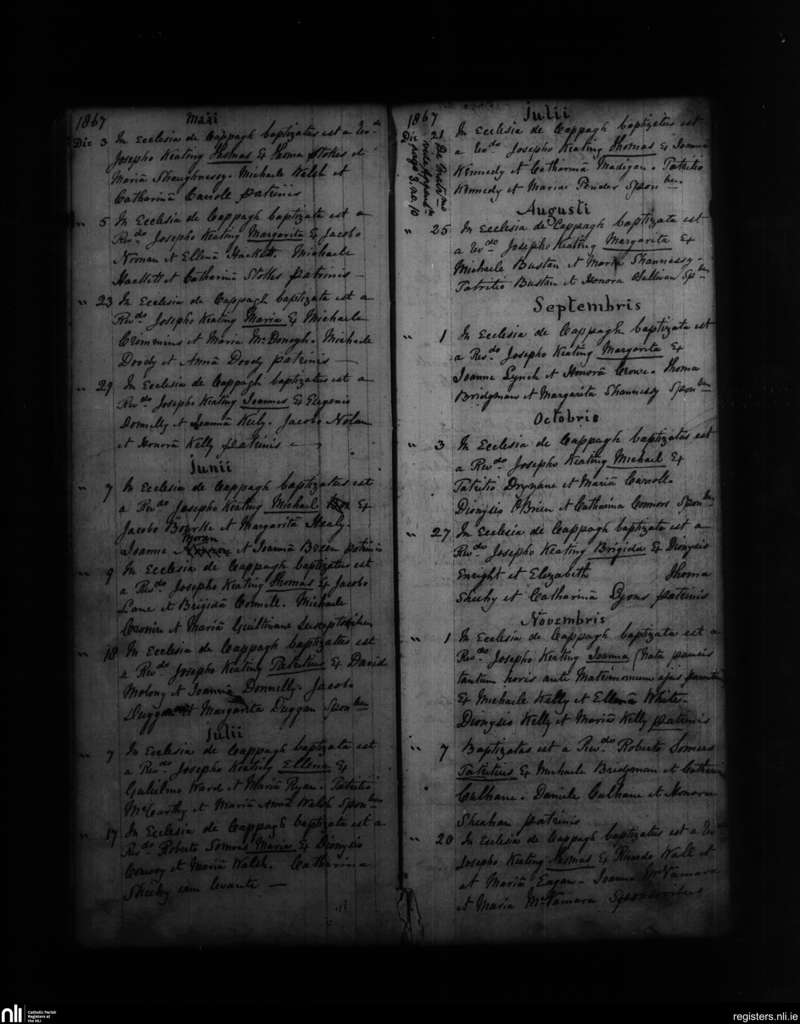 1867 Maii
Die 3 In Ecclesia de Cappagh baptizatus est a Revdo
Josepho Keating Thomas Ex Thoma Stokes et
Maria Shaughnessy. Michaele Walsh et
Catharinâ Carrole patrinis
" 5 In Ecclesia de Cappagh baptizata est a
Revdo Josepho Keating Margarita Ex Jacobo
Noonan et Ellenâ Hackett. Michaele
Hackett et Catharinâ Stokes patrinis —
" 23 In Ecclesia de Cappagh baptizata est a
Revdo Josepho Keating Maria Ex Michaele
Crimmins et Maria McDonogh. Michaele
Doody et Annâ Doody patrinis —
" 29 In Ecclesia de Cappagh baptizatus est a
Revdo Josepho Keating Joannes Ex Eugenio
Donnelly et Joannâ Keely. Jacobo Nolan
et Honorâ Kelly patrinis
Junii
" 7 In Ecclesia de Cappagh baptizatus est
a Revdo Josepho Keating Michael Ex
Jacobo Bourke et Margaritâ Healy.
Moran
Joanne et Joannâ Breen patrinis
" 9 In Ecclesia de Cappagh baptizatus est
a Revdo Josepho Keating Thomas Ex Jacobo
Lane et Brigidâ Connell. Michaele
Cronin et Mariâ Guiltinane Susceptoribus
" 18 In Ecclesia de Cappagh baptizatus est
a Revdo Josepho Keating Patritius Ex Davide
Molony et Joanna Donnelly. Jacobo
Duggan et Margarita Duggan Sponbus
Julii
" 7 In Ecclesia de Cappagh baptizata est
a Revdo Josepho Keating Ellena Ex
Gulielmo Ward et Mariâ Ryan. Patritio
McCarthy et Mariâ Annâ Walsh Sponbus
" 17 In Ecclesia de Cappagh baptizata est a
Revdo Roberto Somers Maria Ex Dionysio
Conroy et Mariâ Walsh. Catharina
Sheehy eam levante —
1867 Julii
Die 21 In Ecclesia de Cappagh baptizatus est
a Revdo Josepho Keating Thomas Ex Joanne
Kennedy et Catharinâ Madigan. Patritio
Kennedy et Maria Sponbus.
vide
page 3, no. 10
Augusti
" 25 In Ecclesia de Cappagh baptizata est
a Revdo Josepho Keating Margarita Ex
Michaele Bustan et Mariâ Shannessy.
Patritio Bustan et Honora Sullivan Spbus
Septembris
" 1 In Ecclesia de Cappagh baptizata est
a Revdo Josepho Keating Margarita Ex
Joanne Lynch et Honorâ Crowe. Thoma
Bridgman et Margarita Shannessy Sponbus
Octobris
" 3 In Ecclesia de Cappagh baptizatus est
a Revdo Josepho Keating Michael Ex
Patritio Drynane et Mariâ Carroll.
Dionysio O'Brien et Catharina Connors Sponbus
" 27 In Ecclesia de Cappagh baptizata est a
Revdo Josepho Keating Brigida Ex Dionysio
Enright et Elizabeth Thoma
Sheehy et Catharinâ Lyons patrinis
Novembris
" 1 In Ecclesia de Cappagh baptizata est a
Revdo Josepho Keating Joanna (Nata paucis
tantum horis ante Matrimonium ejus parentum
Ex Michaele Kelly et Ellenâ White.
Dionysio Kelly et Mariâ Kelly patrinis
" 7 Baptizatus est a Revdo Roberto Somers
Patritius Ex Michaele Bridgman et Catharinâ
Culhane. Daniele Culhane et Honora
Sheahan patrinis
" 20 In Ecclesia de Cappagh baptizatus est a Revdo
Josepho Keating Thomas Ex Ricardo Wall et
et Mariâ Eagan. Joanne McNamara
et Maria McNamara Sponsoribus
nli Catholic Parish
Registers at
the NLI
registers.nli.ie